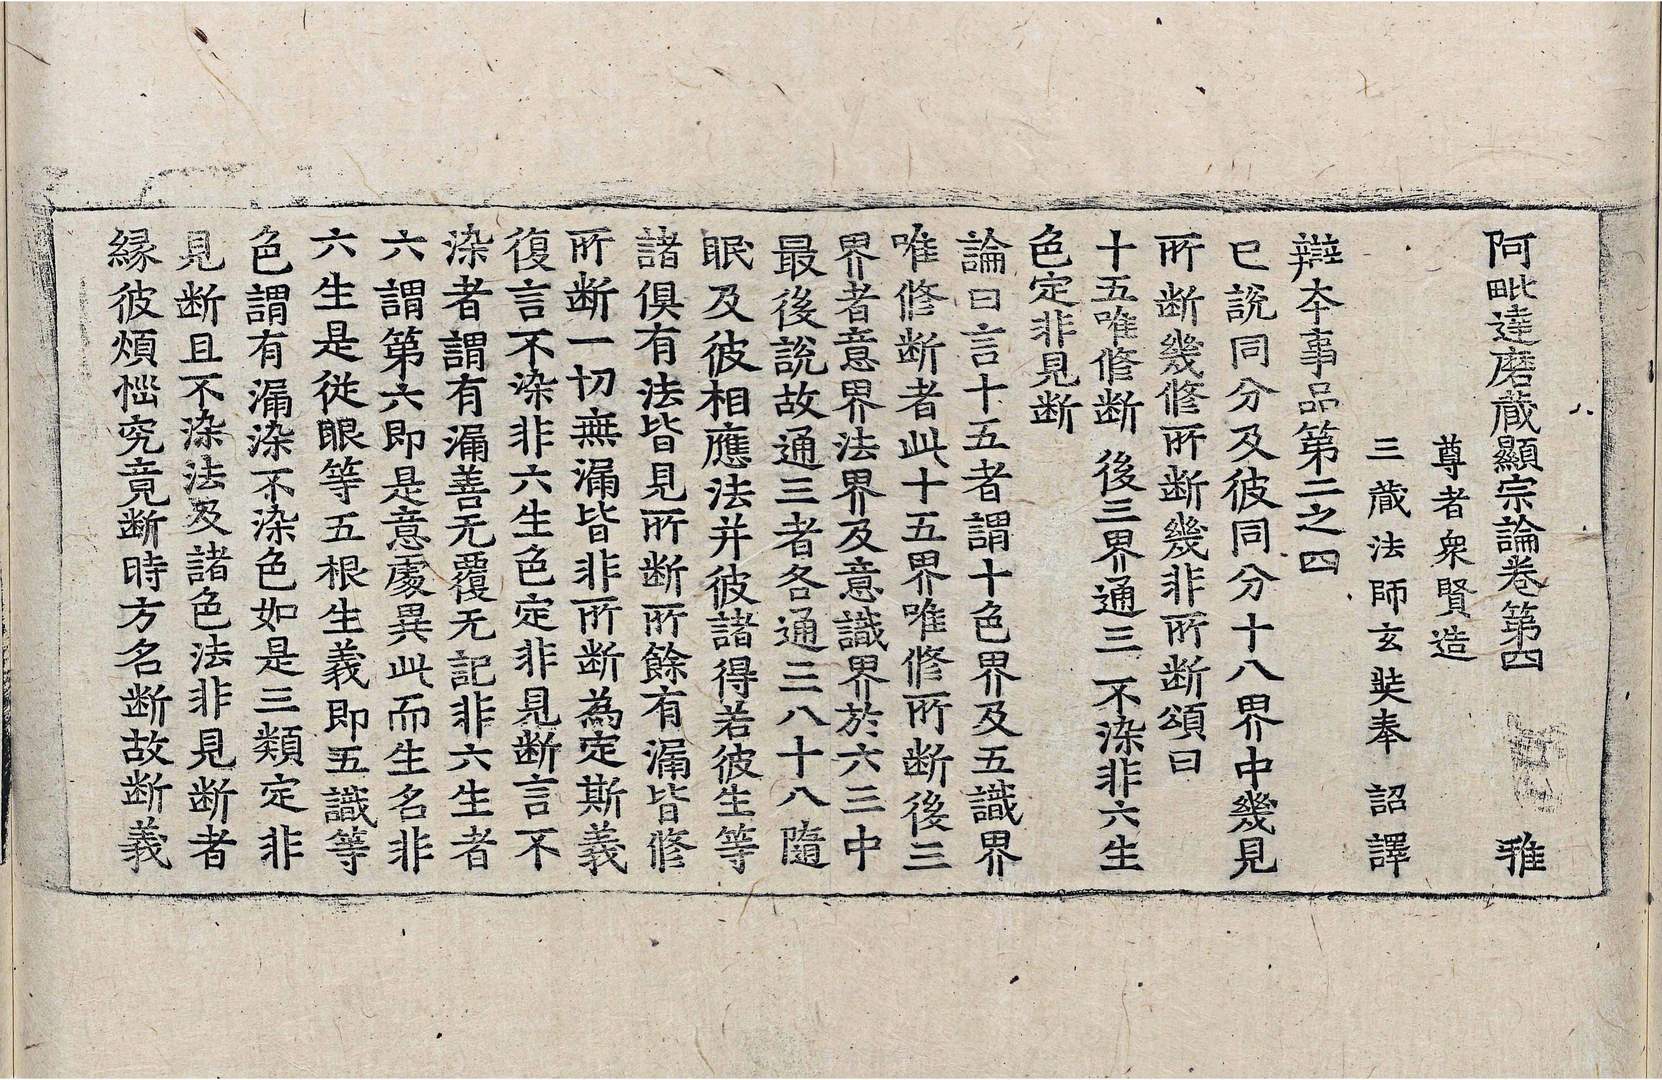 阿毗達磨蔵顯宗論卷第四 雅
尊者衆賢造
三蔵法師玄奘奉 詔譯
辯本事品第二之四
已說同分及彼同分十八界中幾見
所断幾修所断幾非所断頌曰
十五唯修断 後三界通三 不染非六生
色定非見断
論曰言十五者謂十色界及五識界
唯修断者此十五界唯修所断後三
界者意界法界及意識界於六三中
最後說故通三者各通三八十八隨
眠及彼相應法并彼諸得若彼生等
諸俱有法皆見所断所餘有漏皆修
所断一切無漏皆非所断為定斯義
復言不染非六生色定非見断言不
染者謂有漏善无覆无記非六生者
六謂第六即是意處異此而生名非
六生是從眼等五根生義即五識等
色謂有漏染不染色如是三類定非
見断且不染法及諸色法非見断者
縁彼煩惱究竟断時方名断故断義